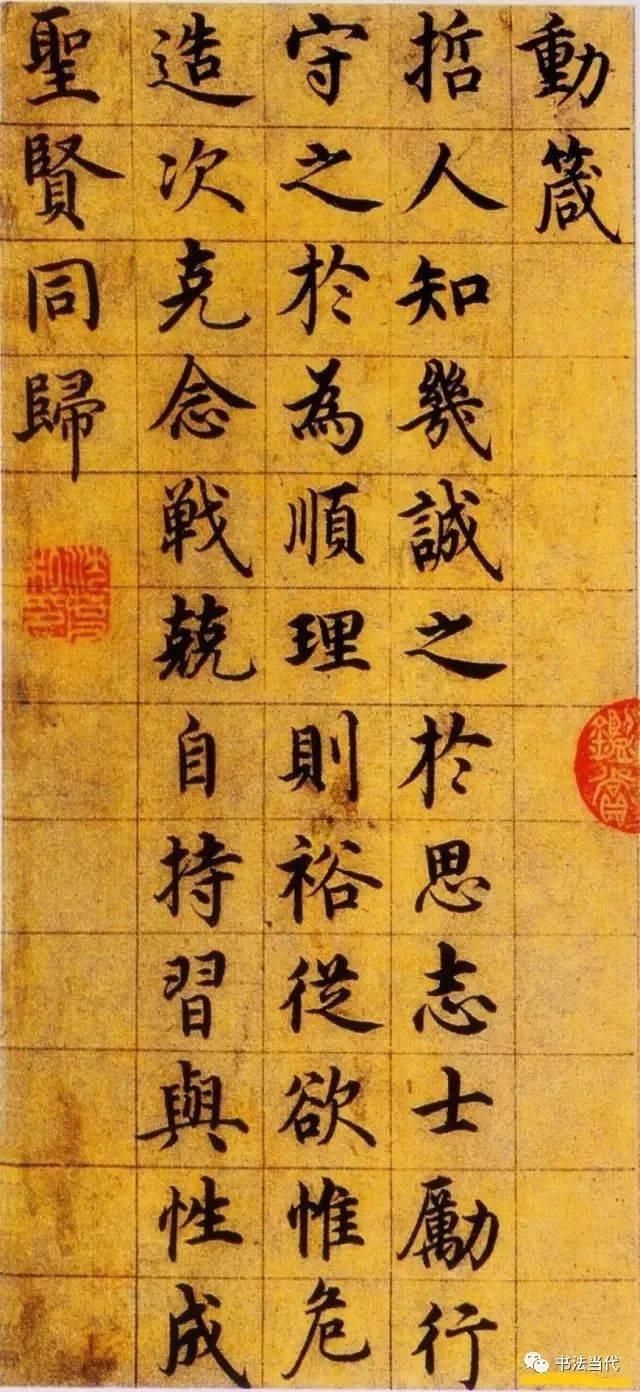 動箴
哲人知幾誠之於思志士勵行
守之於為順理則裕從欲惟危
造次克念戦兢自持習與性成
聖賢同歸
书法当代